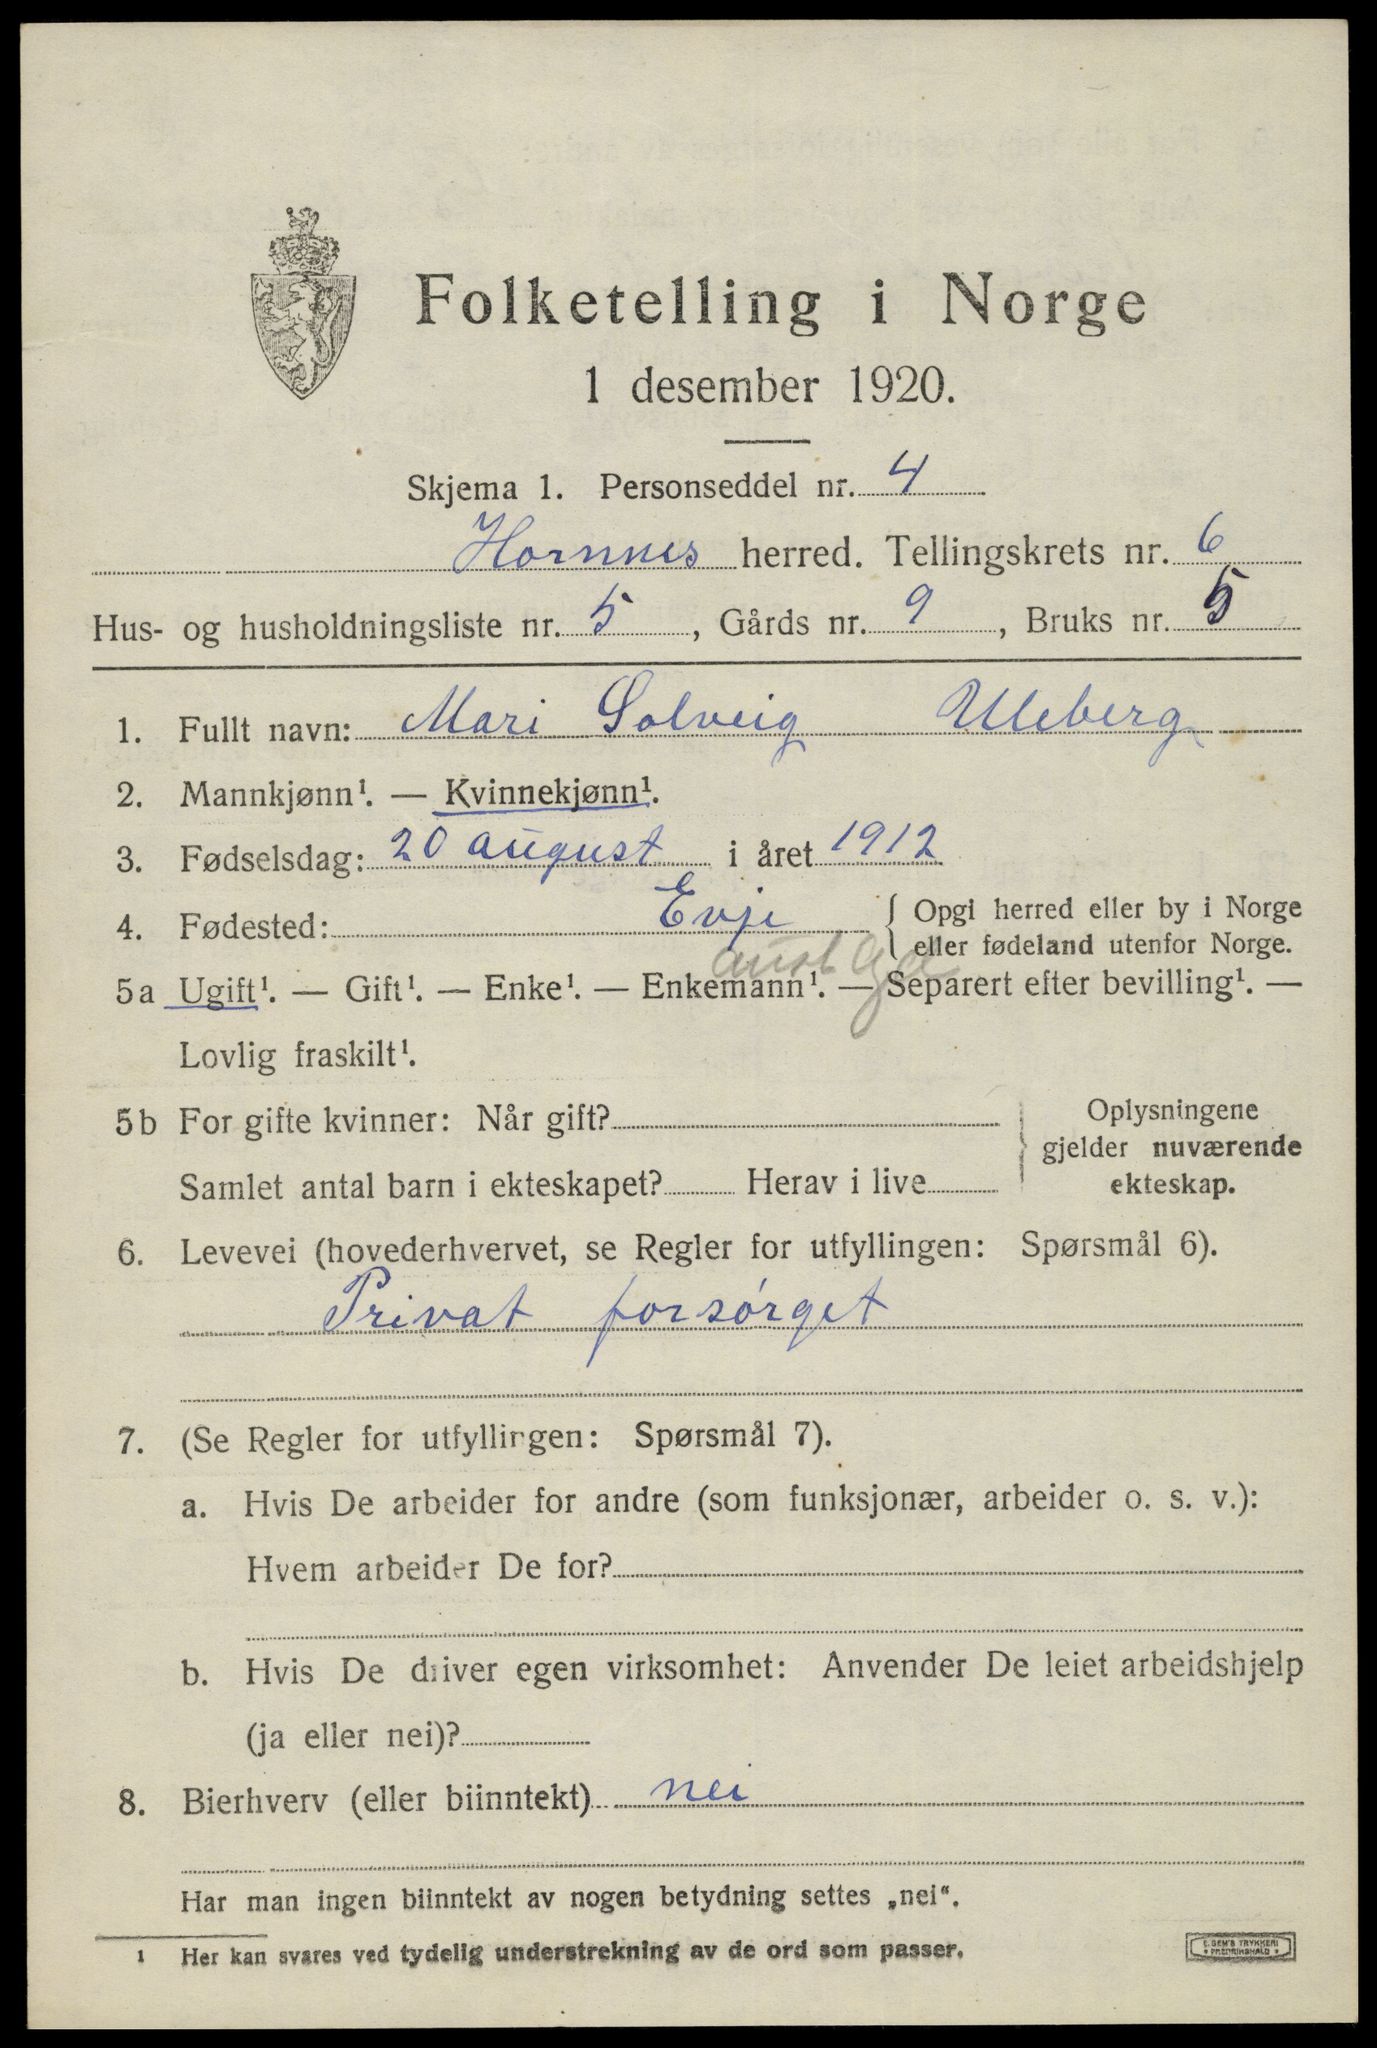 Folketelling i Norge
1 desember 1920.
Skjema 1. Personseddel nr. 4
Hornnes herred. Tellingskrets nr. 6
Hus- og husholdningsliste nr. 5, Gårds nr. 9, Bruks nr. 5
1. Fullt navn: Mari Solveig Uleberg
2. Mannkjønn¹. — Kvinnekjønn¹.
3. Fødselsdag: 20 august i året 1912
4. Fødested: Evje { Opgi herred eller by i Norge
eller fødeland utenfor Norge.
aust Agd
5a Ugift¹. — Gift¹. — Enke¹. — Enkemann¹. — Separert efter bevilling¹. —
Lovlig fraskilt¹.
5b For gifte kvinner: Når gift?
Samlet antal barn i ekteskapet? Herav i live
Oplysningene
gjelder nuværende
ekteskap.
6. Levevei (hovederhvervet, se Regler for utfyllingen: Spørsmål 6).
Privat forsørget
7. (Se Regler for utfyllingen: Spørsmål 7).
a. Hvis De arbeider for andre (som funksjonær, arbeider o. s. v.):
Hvem arbeider De for?
b. Hvis De driver egen virksomhet: Anvender De leiet arbeidshjelp
(ja eller nei)?
8. Bierhverv (eller biinntekt) nei
Har man ingen biinntekt av nogen betydning settes „nei“.
¹ Her kan svares ved tydelig understrekning av de ord som passer.
E. SEM'S TRYKKERI
FREDRIKSHALD